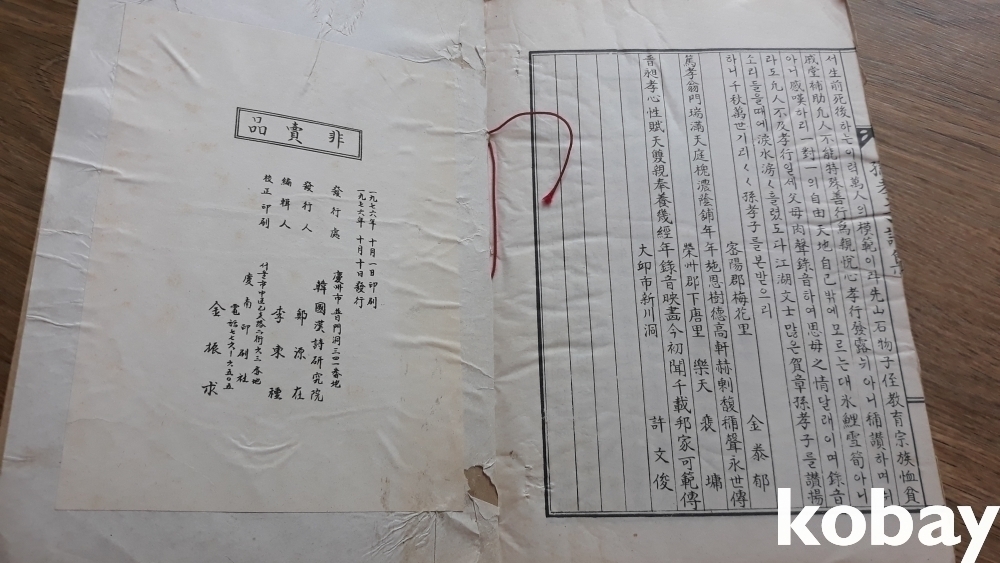 서生前死後하는이력萬人의模範이라先山石物子侄教育宗族恤貧
戚堂補助凡人不能特殊善行爲親忱心孝行發露뉘아니稱讚하며뉘
아니感嘆하리 對一의自由天地自己밖에모르는대氷鯉雪筍아니
라도凡人不及孝行일세父母肉聲錄音하여思母之情달래이며錄音
소리들을때에淚水滂〱흘렸도다江湖文士많은賀章孫孝子를讚揚
하니千秋萬世기리〱孫孝子를본받으리
密陽郡梅花里 金泰郁
篤孝翁門瑞滿天庭槐濃蔭鋪年年施恩樹德高軒赫剩馥稱聲永世傳
榮州郡下唐里 樂天 裵墉
昶孝心性賦天雙親奉養幾經年錄音映畵今初聞千載邦家可範傳
大邱市新川洞 許文俊
非賣品
一九七六年 十月一日印刷
一九七六年 十月十日發行
慶州市 普門洞三四一番地
發行處 韓國漢詩研究院
發行人 鄭源在
編輯人 李東種
서울市中區乙支路二街六三番地
校正印刷 慶南印刷社
電話七七六一六五〇五
金振求
kobay